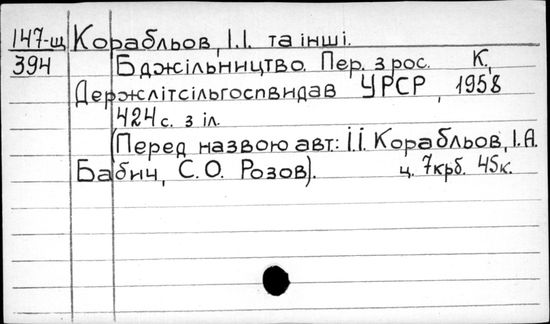 147-щ Корабльов, І.І. та інші.
394 Бджільництво. Пер. з рос. К.,
Держлітсільгоспвидав УРСР, 1958
424 с. з іл.
(Перед назвою авт: І.І. Корабльов, І.А.
Бабич, С.О. Розов). ц. 7крб. 45к.